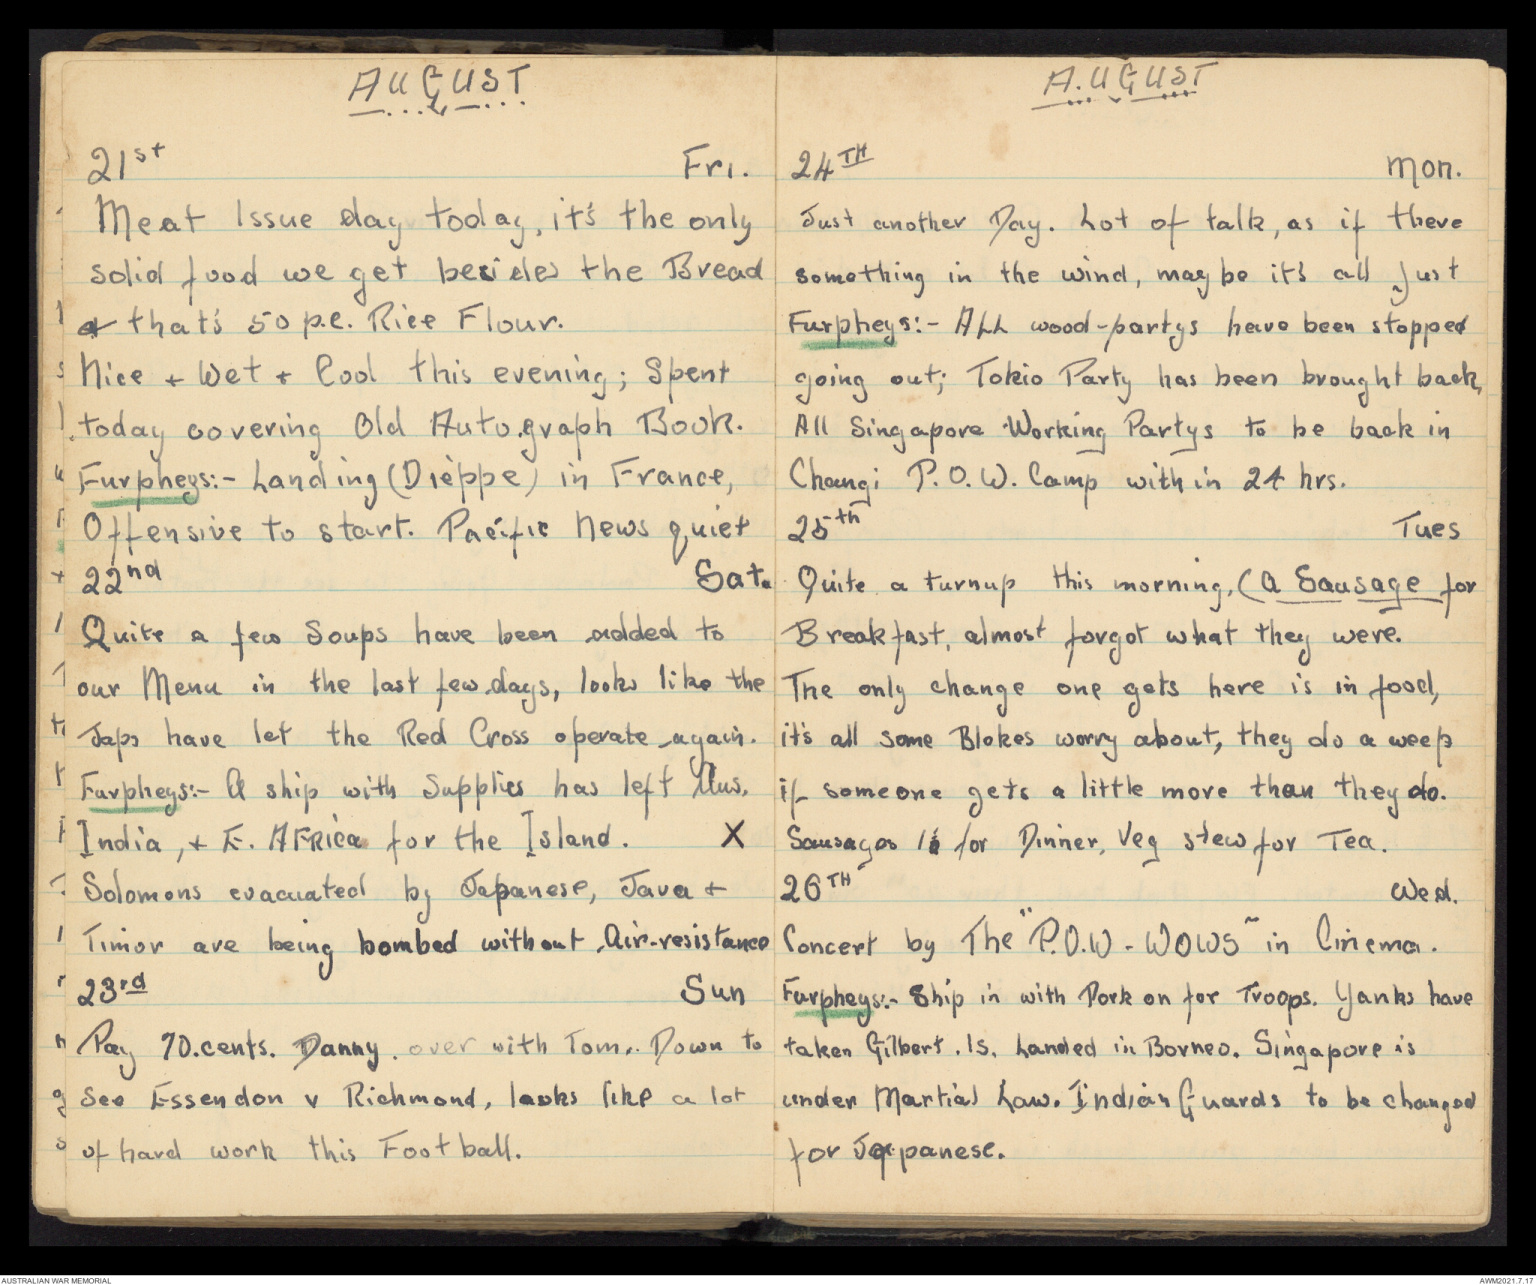 AUGUST
21st Fri.
Meat Issue day today, it's the only
solid food we get besides the Bread
& that's 50 p.c. Rice Flour.
Nice + Wet + Cool this evening; Spent
today covering Old Autograph Book.
Furpheys:- Landing (Dieppe) in France,
Offensive to start. Pacific News quiet
22nd Sat.
Quite a few Soups have been added to
our Menu in the last few days, looks like the
Japs have let the Red Cross operate again.
Furpheys:- A ship with Supplies has left Aus,
India, + E. AFRica for the Island. X
Solomons evacuated by Japanese, Java +
Timor are being bombed without Air-resistance
23rd Sun
Pay 70.cents. Danny over with Tom. Down to
See Essendon v Richmond, looks like a lot
of hard work this Football.
A.UGUST
24TH Mon.
Just another Day. Lot of talk, as if there
something in the wind, maybe it's all Just
Furpheys:- ALL wood-partys have been stopped
going out; Tokio Party has been brought back,
All Singapore Working Partys to be back in
Changi P.O.W. Camp within 24 hrs.
25th Tues
Quite a turnup this morning, (a Sausage for
Breakfast, almost forgot what they were.
The only change one gets here is in food,
it's all some Blokes worry about, they do a weep
if someone gets a little more than they do.
Sausages 1½ for Dinner, Veg stew for Tea.
26TH Wed.
Concert by The "P.O.W-WOWS" in Cinema.
Furpheys:- Ship in with Pork on for Troops. Yanks have
taken Gilbert. Is. Landed in Borneo. Singapore is
under Martial Law. Indian Guards to be changed
for Japanese.
AUSTRALIAN WAR MEMORIAL
AWM2021.7.17